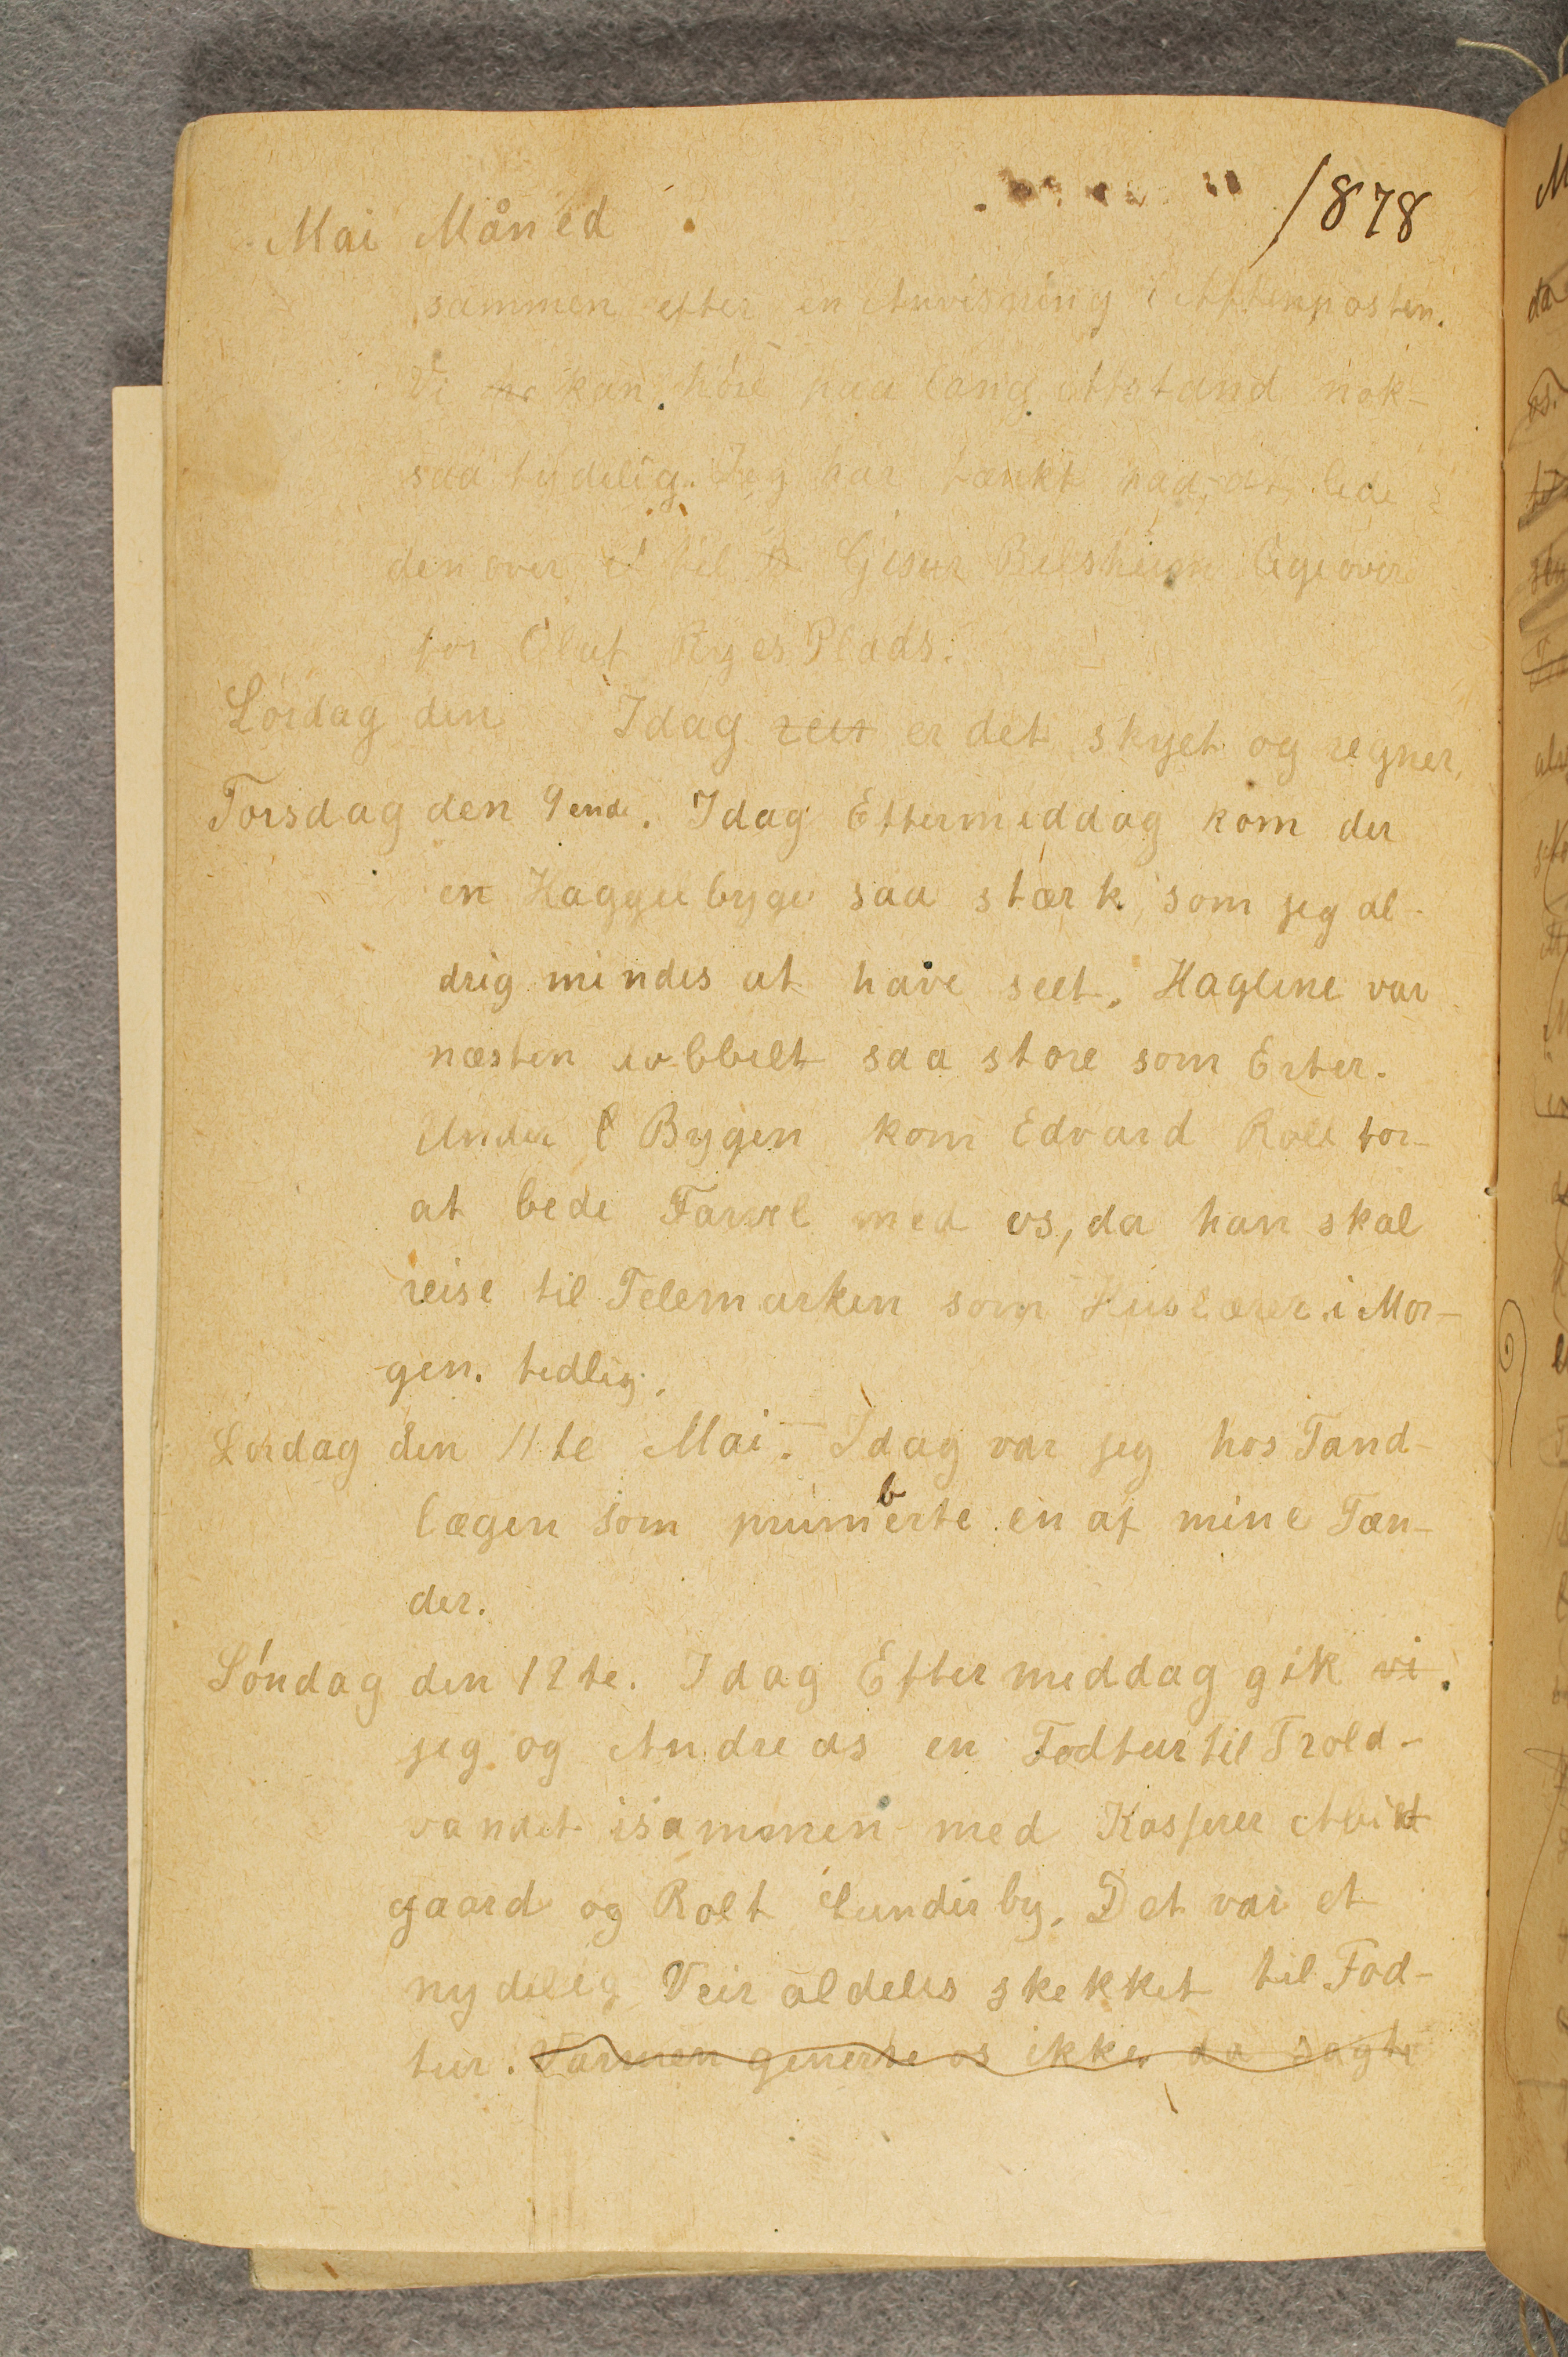 Mai Måned 1878
sammen efter en Anvisning i Aftenposten.
Vi kan høre paa lang Afstand nok-
saa tydelig. Jeg har tænkt paa at lede
den over til lige over
for Oluf Ryes Plads.
Lørdag den Idag er det skyet og regner,
Torsdag den 9ende. Idag Eftermiddag kom der
en Haggelbyge saa stærk som jeg al-
drig mindes at have seet. Haglene var
næsten saa store som Erter.
Under Bygen kom Edvard Roll for
at bede Farvel med os, da han skal
reise til Telemarken som Huslærer i Mor-
gen. tidlig.
Lørdag den 11te Mai. Idag var jeg hos Tand-
lægen som plumberte en af mine Tæn-
der.
Søndag den 12te. Idag Eftermiddag gik vi.
jeg og Andreas en Fodtur til Trold-
vandet isammen med Kasserer
gaard og Rolf Lunderby. Det var et
nydelig Veir aldeles skikket til Fod-
tur. Varmen generte os ikke da sagte